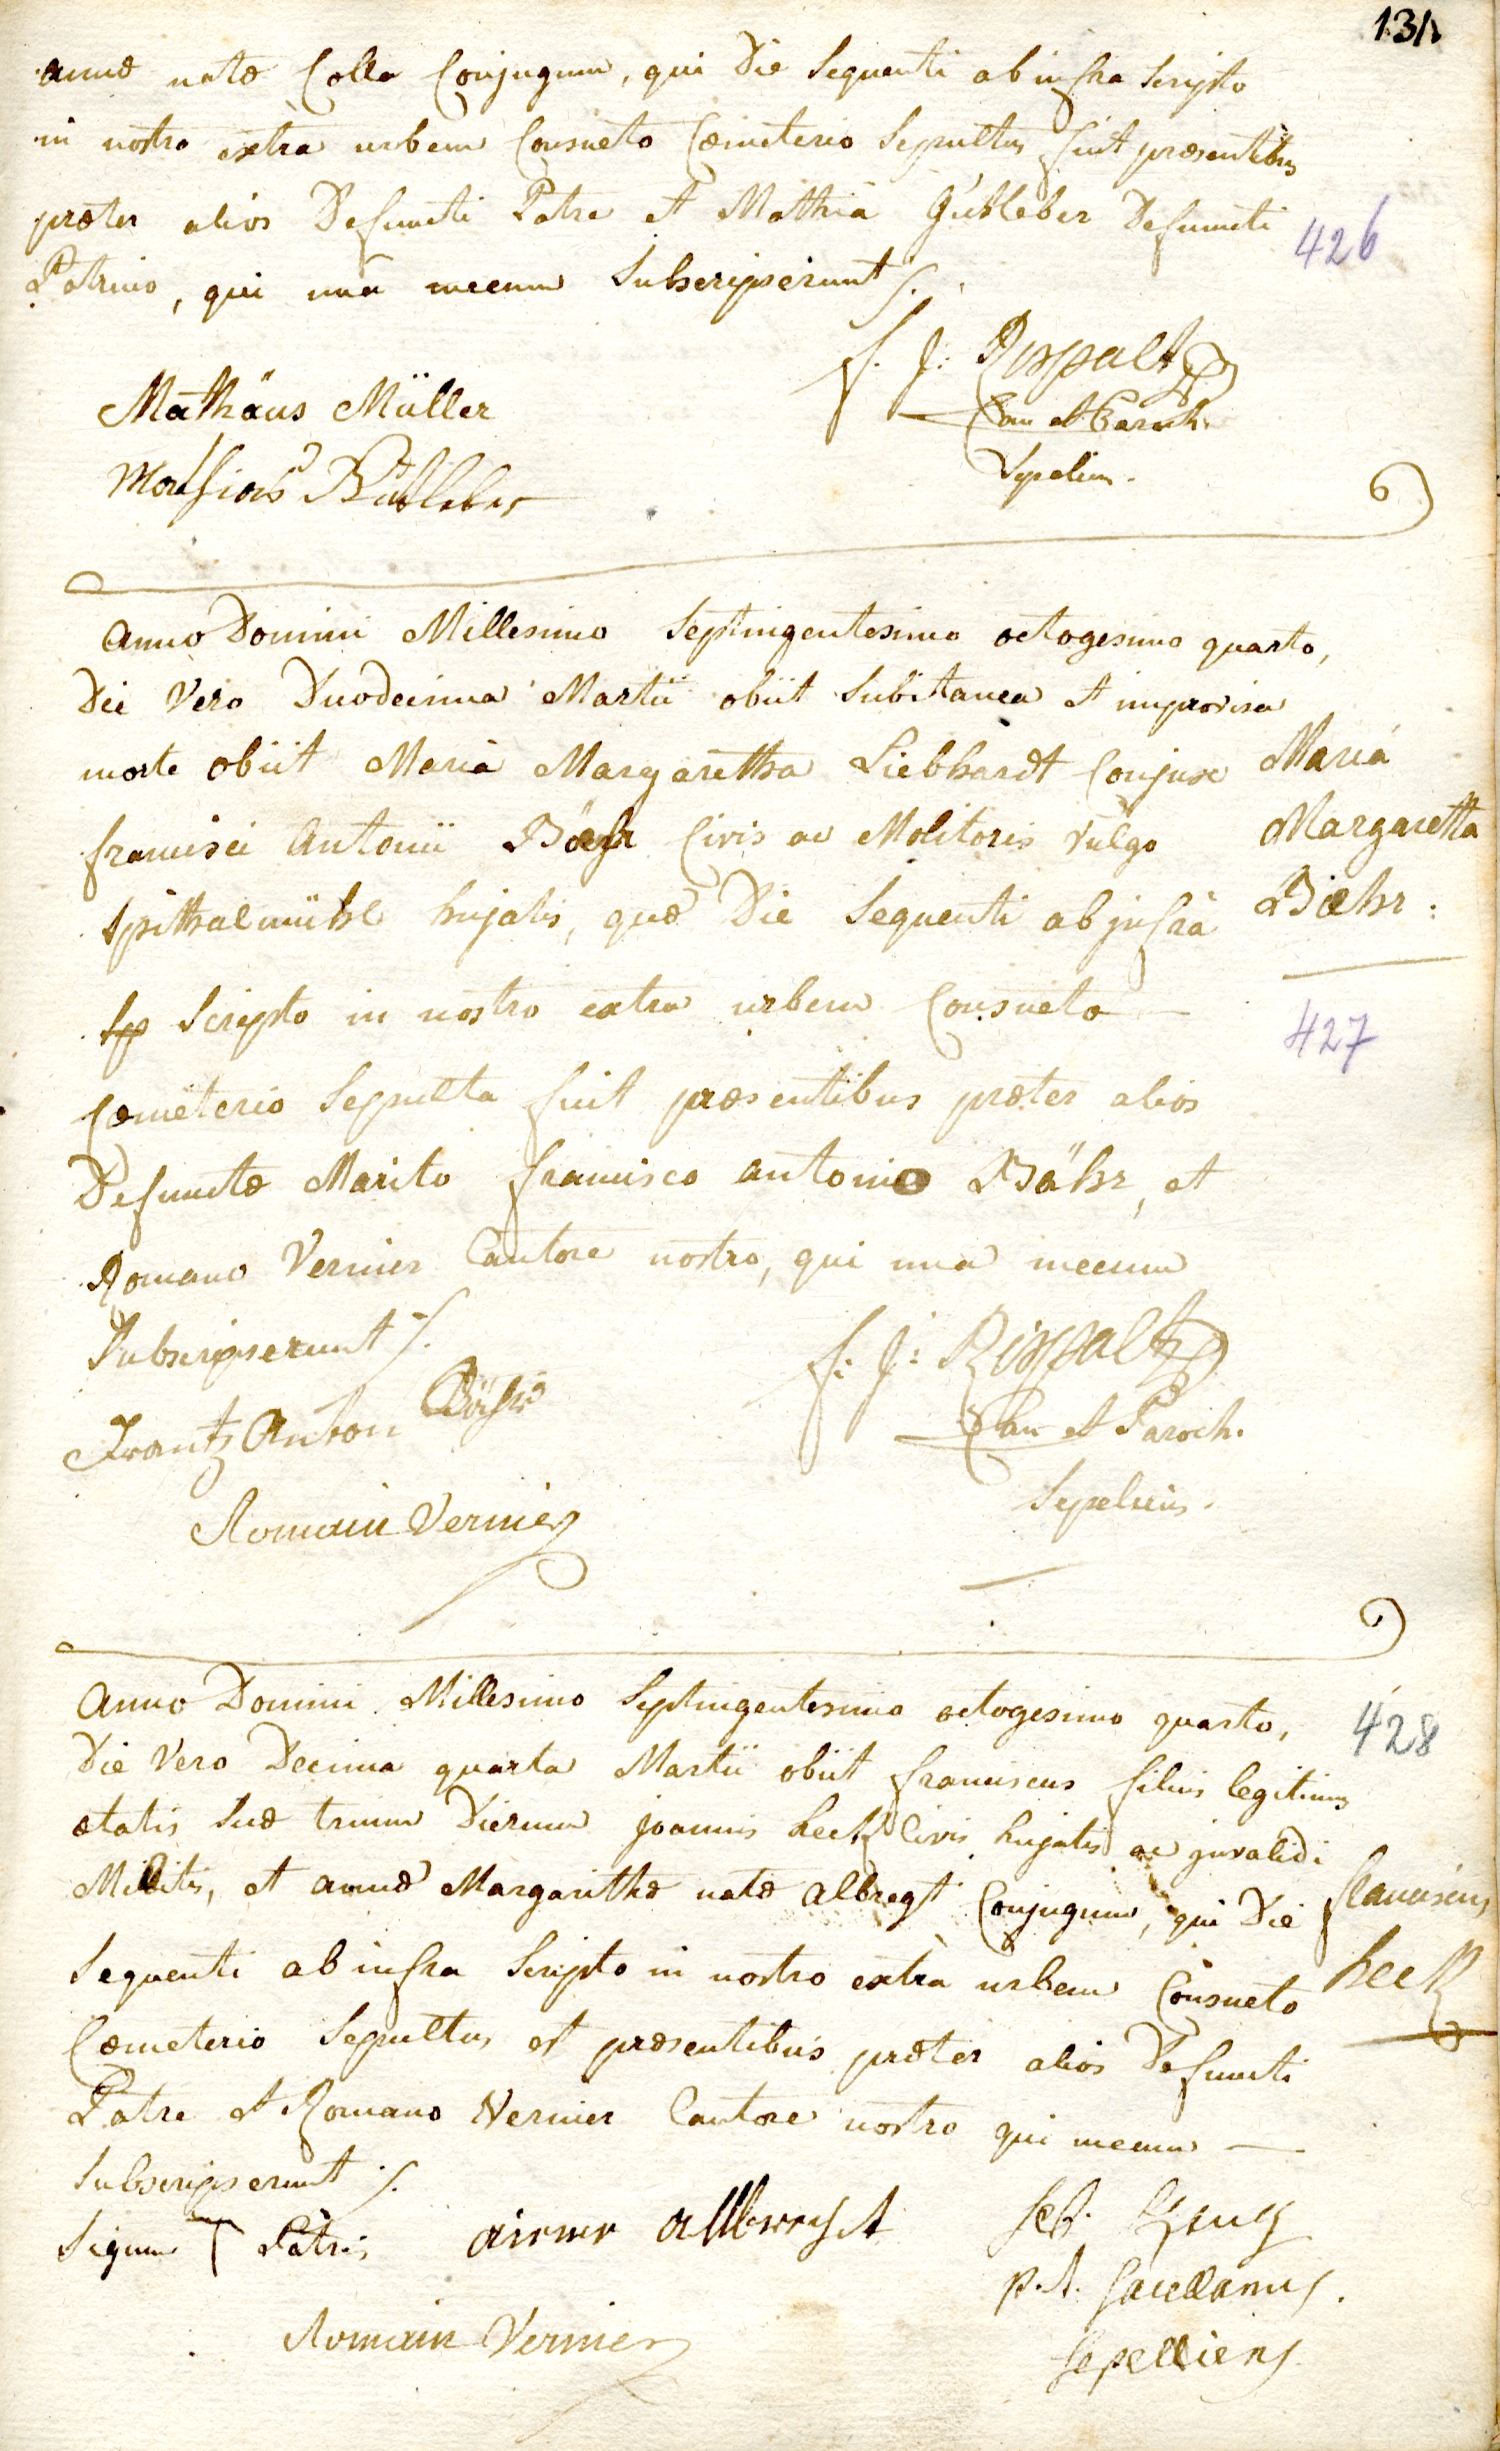 131
annæ natæ Colla Conjugum, qui Die Sequenti ab infra Scripto
in nostro extra urbem Consueto Cœmeterio Sepultus fuit præsentibus
præter alios Defuncti Patre et Mathia Gutleber Defuncti
426
Patrino, qui una mecum Subscripserunt ./.
f. j: Rippaltz
Mathäus Müller
Can et Paroch.
Sepeliens.
Anno Domini Millesimo Septingentesimo octogesimo quarto,
Die Vero Duodecima Martii obiit Subitanea et improvisa
morte obiit Maria Margaretha Liebhardt Conjux
Maria
francisci Antonii Böehr Civis ac Molitoris vulgo
Margaretta
Spithalmühl hujatis, quæ Die Sequenti ab jnfrà
Biehr :
Sp Scripto in nostro extra urbem Consueto —
427
Cœmeterio Sepulta fuit præsentibus præter alios
Defunctæ Marito francisco antonio Bähr, et
Romano Vernier Cantore nostro, qui una mecum
Subscripserunt ./.
f: j: Rippaltz
Frantz Anton Bähr
Can et Paroch.
Romain Vernier
Sepeliens.
Anno Domini Millesimo Septingentesimo octogesimo quarto,
428
Die Vero Decima quarta Martii obiit franciscus filius legitimus
ætatis Suæ trium Dierum joannis heck Civis hujatis ac jnvalidi
Militis, et annæ Margarithæ natæ albregt Conjugum, qui Die
franciscus
Sequenti ab infra Scripto in nostro extra urbem Consueto
heck
Cœmeterio Sepultus et præsentibus præter alios Defuncti
Patre et Romano Vernier Cantore nostro qui mecum —
Subscripserunt ./.
Signum Patris
P. t. Sacellanus.
Romain Vernier
Sepelliens